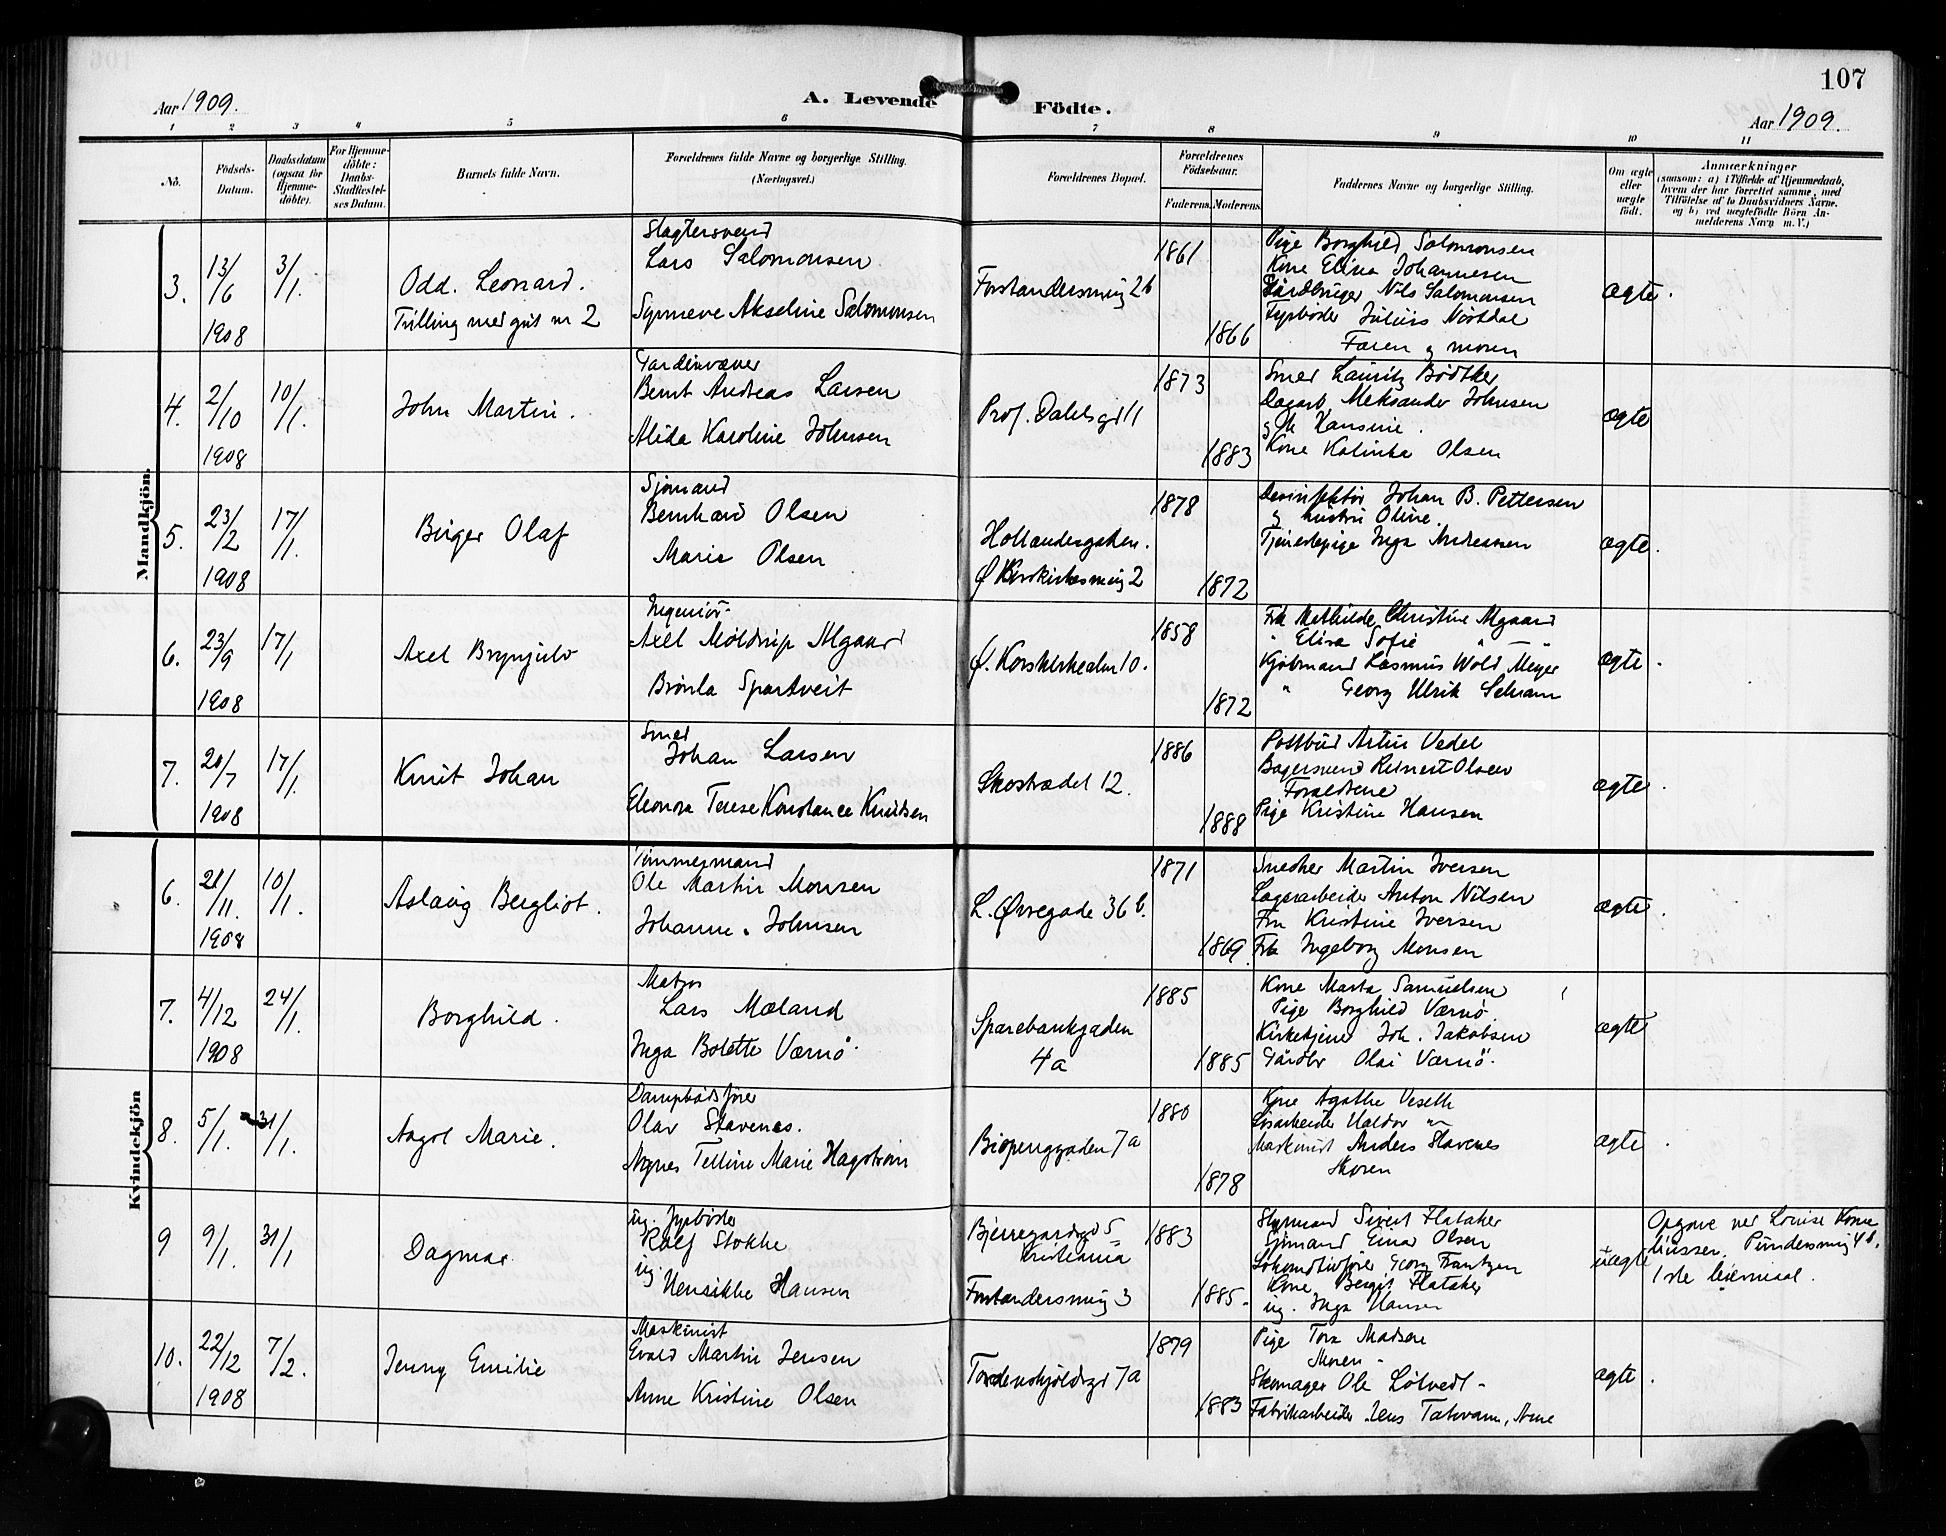 107
Aar 1909.
A. Levende Födte.
Aar 1909.
1 2 3 4 5 6 7 8 9 10 11
No.
Födsels-Datum.
Daabsdatum (ogsaa for Hjemme-döbte).
For Hjemme-döbte: Daabs-Stadfæstel-ses Datum.
Barnets fulde Navn.
Forældrenes fulde Navne og borgerlige Stilling. (Næringsvei.)
Forældrenes Bopæl.
Forældrenes Födselsaar.
Faderens. Moderens.
Faddernes Navne og borgerlige Stilling.
Om ægte eller uægte födt.
Anmærkninger
(saasom: a) i Tilfælde af Hjemmedaab, hvem der har forrettet samme, med Tilföielse af to Daabsvidners Navne, og b) ved uægtefödte Börn An-melderens Navn m. V.)
Mandkjön.
3. 13/6 1908 3/1.
Odd. Leonard.
Trilling med gut nr 2
Slagtersvend
Lars Salomonsen
Synneve Akseline Salomonsen
Forstandersmug 2b
1861
1866
Pige Borghild Salomonsen
Kone Elina Johannesen
Gårdbruger Nils Salomonsen
Fyrbøder Julius Nostdal
Faren og moren
ægte.
4. 2/10 1908 10/1.
John Martin.
Gardinvæver
Bernt Andreas Larsen
Alida Karoline Johnsen
Prof. Dahlsgd 11
1873
1883
Smed Lauritz Bødtker
Dagarb Aleksander Johnsen
og h Hansine.
Kone Kalinka Olsen
ægte
5. 23/2 1908 17/1.
Birger Olaf
Sjømand
Bernhard Olsen
Marie Olsen
Hollandergaden.
Ø Korskirkesmug 2
1878
1872
Desinfektør Johan B. Pettersen
og hustru Oline.
Tjenestepige Inga Andreassen
ægte.
6. 23/9 1908 17/1
Axel Brynjulv
Ingeniør
Axel Møldrup Algaard
Brønla Spartveit
Ø. Korskirkealm 10.
1858
1872
Frk Mathilde Christine Algaard
" Elisa Sofie " —
Kjøbmand Rasmus Wold Meyer
" Georg Ulrik Schram
ægte.
7. 20/7 1908 17/1.
Knut Johan
Smed
Johan Larsen
Eleonora Terese Konstance Knudsen
Skostrædet 12.
1886
1888
Postbud Artur Vedel
Bagersvend Reinert Olsen
Forældrene
Pige Kristine Hansen
ægte.
Kvindekjön
6. 21/11. 1908 10/1.
Aslaug Bergliot.
Tømmermand
Ole Martin Monsen
Johanne. Johnsen
L. Øvregade 36 b.
1871
1869.
Snedker Martin Iversen
Lagerarbeider Anton Nilsen
Fru Kristine Iversen
Frk Ingeborg Monsen
ægte.
7. 4/12 1908 24/1.
Borghild.
Matros
Lars Mæland
Inga Bolette Værnø.
Sparebankgaden
4a
1885
1885
Kone Marta Samuelsen
Pige Borghild Værnø.
Kirketjener Joh. Jakobsen
Gårdbr Olai Værnø.
ægte
8. 5/1. 31/1.
Aagot Marie.
Dampbådsfører
Olav Stavenes.
Agnes Telline Marie Hagstrøm
Bispenggaden 7a
1880
1878
Kone Agathe Veseth
Løsarbeider Haldor "
Maskinist Anders Stavenes
Moren
ægte.
9 9/1. 31/1
Dagmar.
ug. fyrbøder
Rolf Stokke
ug.
Henrikke Hansen
Bjerregardsgd 5
Kristiania
Forstandersmug 3
1883
1885.
Styrmand Sivert Flataker
Sjømand Einar Olsen
Lokomotivfører Georg Frantzen
Kone Bergit Flataker
ug. Inga Hansen
uægte
Opgave ved Louise
Pundersmug 4 b.
1ste leiermaal.
10. 22/12 1908 7/2.
Jenny Emilie
Maskinist
Evald Martin Jensen
Anne Kristine Olsen
Tordenskjoldsgd 7a
1879
1883
Pige Tora Madsen
Moren.
Skomager Ole Løtvedt.
Fabrikarbeider Jens Tatovam, Arne
ægte.